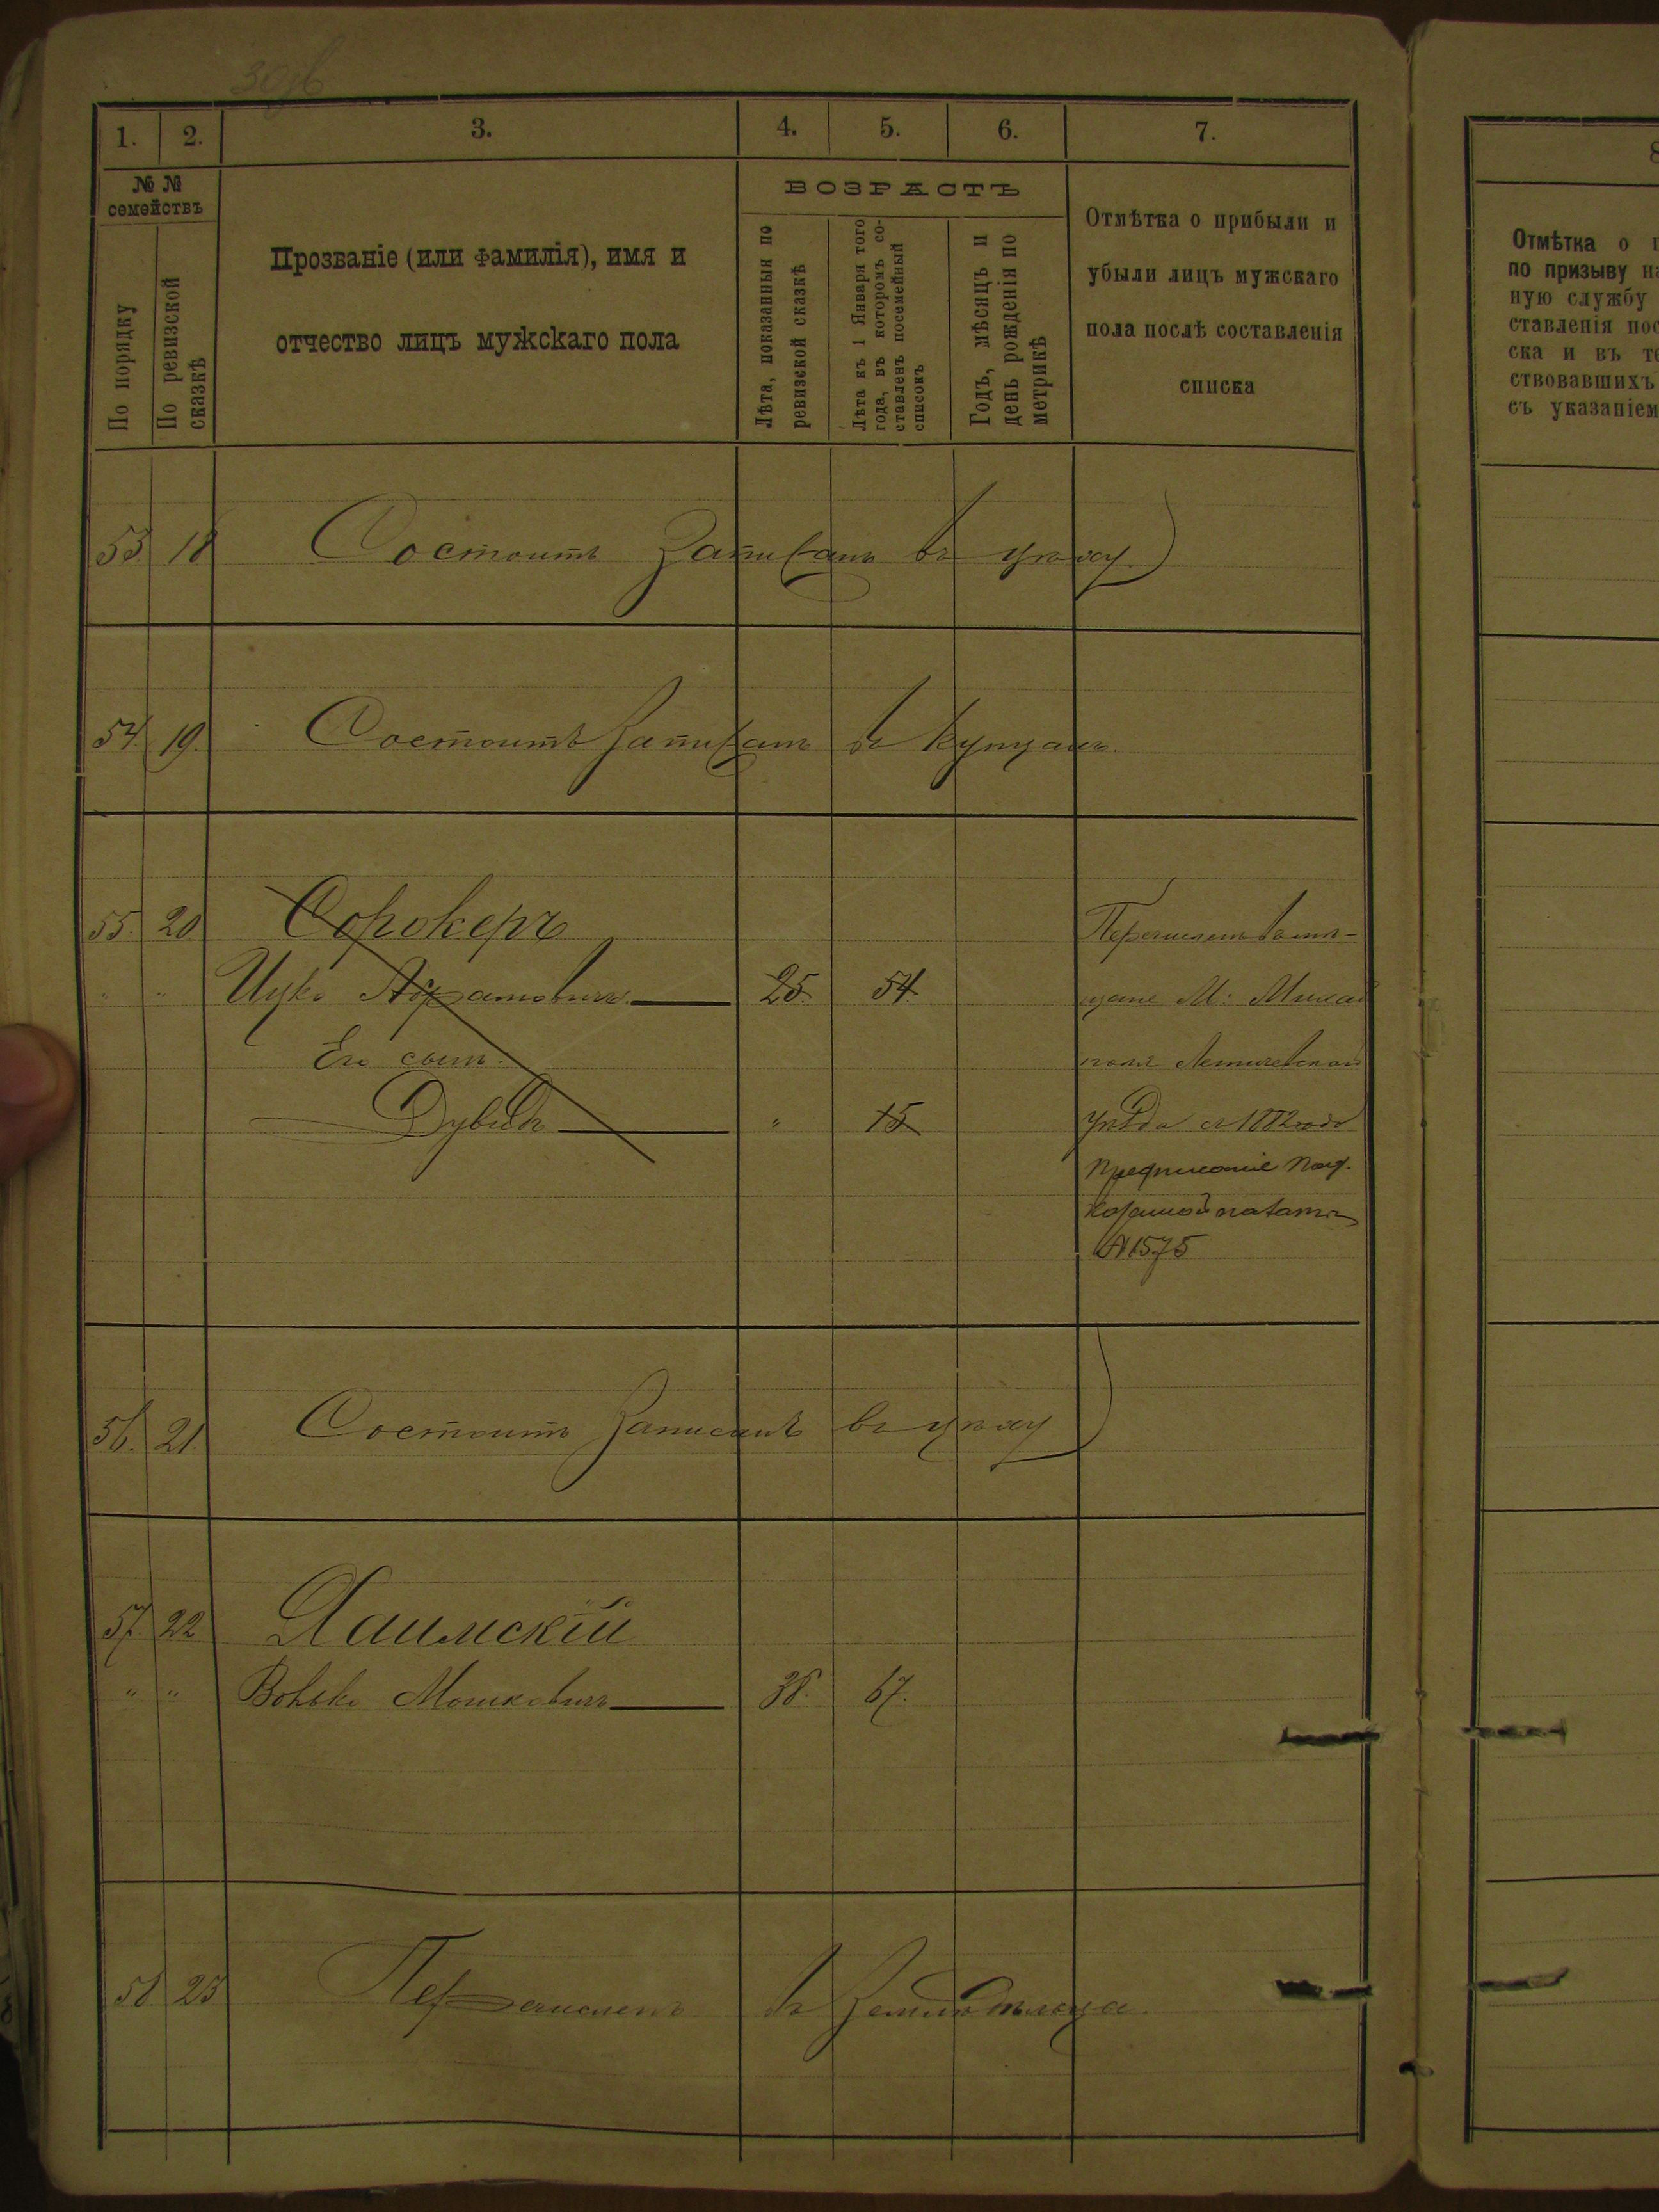 1. 2. 3. 4. 5. 6. 7.
№ № семействъ
По порядку
По ревизской сказкѣ
Прозваніе (или фамилія), имя и
отчество лицъ мужскаго пола
ВОЗРАСТЪ
Лѣта, показанныя по
ревизской сказкѣ
Лѣта къ 1 Января того
года, въ которомъ со-
ставленъ посемейный
списокъ
Годъ, мѣсяцъ и
день рожденія по
метрикѣ
Отмѣтка о прибыли и
убыли лицъ мужскаго
пола послѣ составленія
списка
53 18 Состоитъ записанъ въ
54. 19. Состоитъ записанъ въ купцахъ.
55. 20 Сорокеръ
" " Ицко Абрамовичъ 25. 54
Его сынъ:
Дувидъ " 15
Перечисленъ въ мѣ-
щане М: Михал
поля Летичевскаго
уѣзда съ 1882 года
Предписаніе Под.
Казенной палаты
№ 1575
56. 21. Состоитъ записанъ въ
57. 22 Хаимскій
" " Волько Мошковичъ 38. 67.
58 23 Перечисленъ въ земледѣльца.
8
Отмѣтка о
по призыву
ную службу
ставленія
ска и въ
ствовавшихъ
съ указаніем